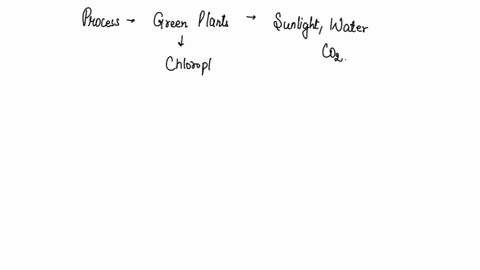 Process → Green Plants → Sunlight, Water
↓ CO2.
Chloropl